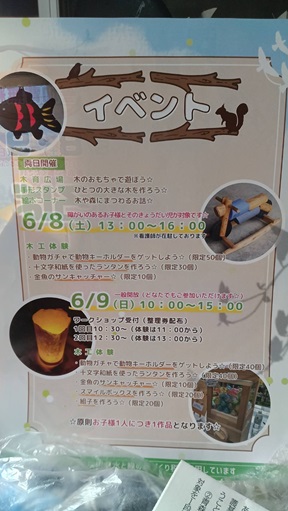 イベント
両日開催
木育広場 木のおもちゃで遊ぼう☆
スタンプ ひとつの大きな木を作ろう☆
コーナー 木や森にまつわるお話☆
障がいのあるお子様とそのきょうだい児が対象です☆
6/8(土) 13:00〜16:00
※看護師が在駐しております
木工体験
・動物ガチャで動物キーホルダーをゲットしよう☆（限定50個）
・十文字和紙を使ったランタンを作ろう☆（限定30個）
・金魚のサンキャッチャー☆（限定10個）
一般開放（どなたでもご参加いただけます☆）
6/9(日) 10:00〜15:00
ワークショップ受付（整理券配布）
1回目10:30〜（体験は11:00から）
2回目12:30〜（体験は13:00から）
木工体験
・動物ガチャで動物キーホルダーをゲットしよう☆（限定40個）
・十文字和紙を使ったランタンを作ろう☆（限定20個）
・金魚のサンキャッチャー☆（限定10個）
・スマイルボックスを作ろう☆（限定20個）
・組子を作ろう☆（限定20個）
☆原則お子様1人につき1作品となります☆
しています